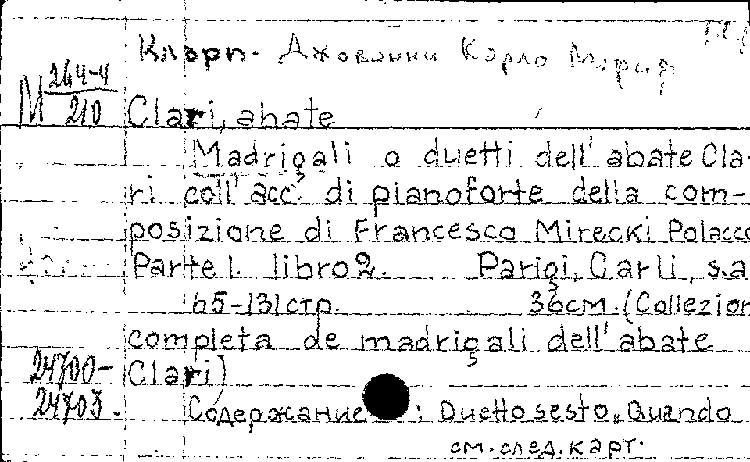 Клари. Джованни Карло Мария
М 264-4/210
Clari, abate
Madrigali o duetti dell' abate Cla-
ri coll' acc. di pianoforte della com-
posizione di Francesco Mirecki Polacco
Parte 1. libro 2. Parigi, Carli, s.a
65-131 стр. 36см. (Collezion
completa de madrigali dell' abate
24700- Clari)
24703. Содержание: Duetto sesto „Quando
см. след. карт.